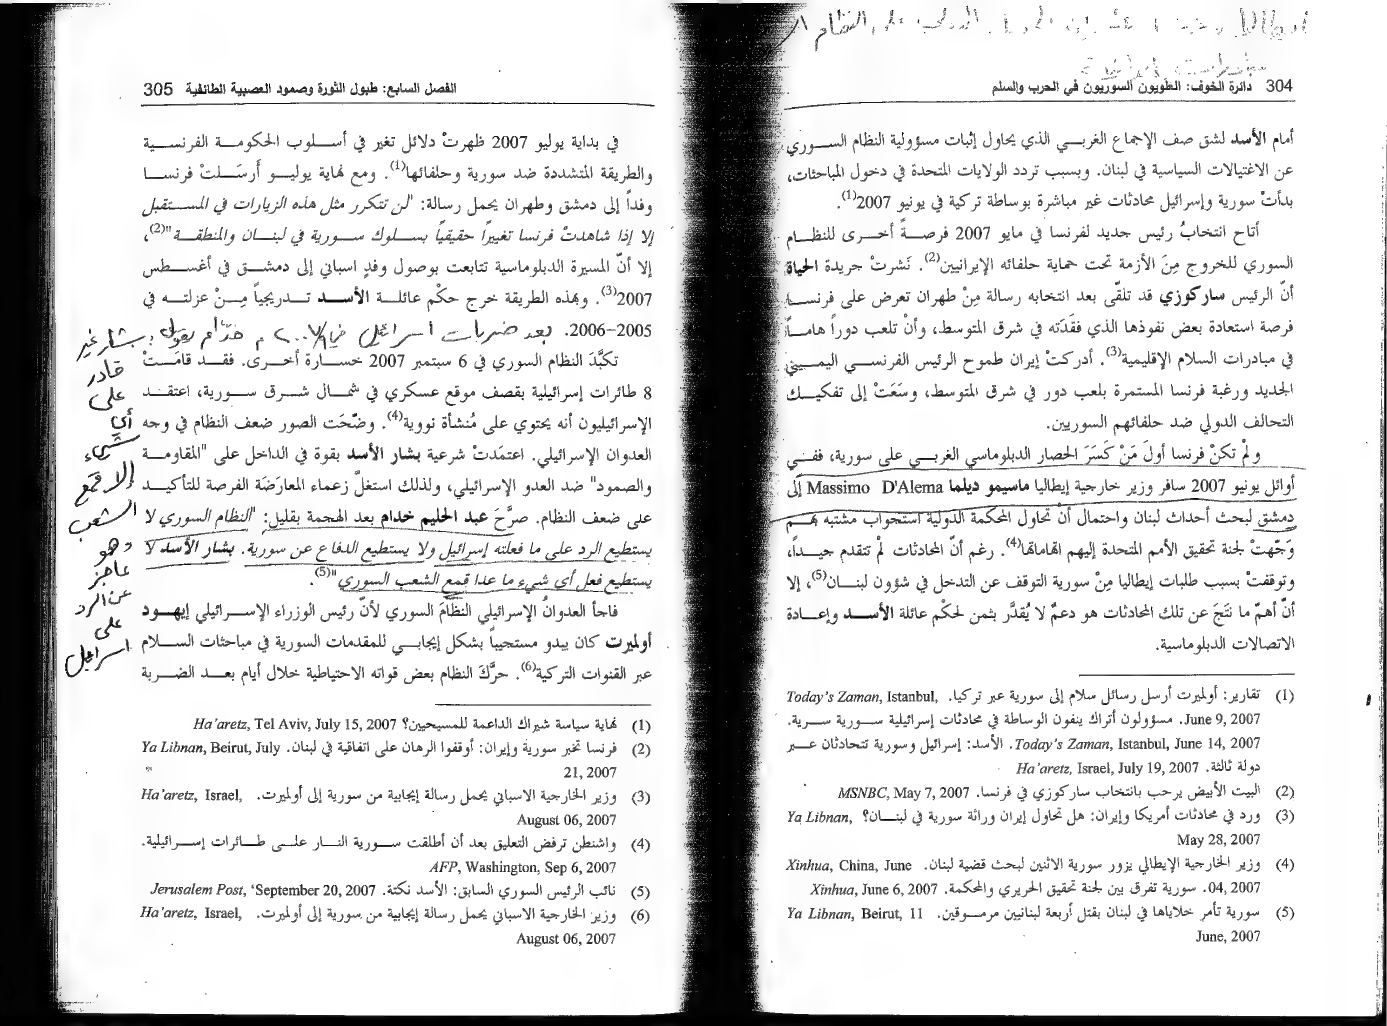 304 دائرة الخوف: العلويون السوريون في الحرب والسلم
أمام الأسد لشق صف الإجماع الغربي الذي يحاول إثبات مسؤولية النظام السوري
عن الاغتيالات السياسية في لبنان. وبسبب تردد الولايات المتحدة في دخول المباحثات،
بدأتْ سورية وإسرائيل محادثات غير مباشرة بوساطة تركية في يونيو 2007(1).
أتاح انتخابُ رئيس جديد لفرنسا في مايو 2007 فرصةً أخرى للنظام
السوري للخروج مِنَ الأزمة تحت حماية حلفائه الإيرانيين(2). نَشرتْ جريدة الحياة
أنّ الرئيس ساركوزي قد تلقّى بعد انتخابه رسالة مِنْ طهران تعرض على فرنسا
فرصة استعادة بعض نفوذها الذي فقَدَته في شرق المتوسط، وأنْ تلعب دوراً هاماً
في مبادرات السلام الإقليمية(3). أدركتْ إيران طموح الرئيس الفرنسي اليميني
الجديد ورغبة فرنسا المستمرة بلعب دور في شرق المتوسط، وسَعَتْ إلى تفكيك
التحالف الدولي ضد حلفائهم السوريين.
ولمْ تكنْ فرنسا أولَ مَنْ كَسَرَ الحصار الدبلوماسي الغربي على سورية، ففي
أوائل يونيو 2007 سافر وزير خارجية إيطاليا ماسيمو ديلما Massimo D'Alema إلى
دمشق لبحث أحداث لبنان واحتمال أنْ تحاول المحكمة الدولية استجواب مشتبه بهم
وَجّهتْ لجنة تحقيق الأمم المتحدة إليهم اتهاماتها(4). رغم أنّ المحادثات لمْ تتقدم جيداً،
وتوقفتْ بسبب طلبات إيطاليا مِنْ سورية التوقف عن التدخل في شؤون لبنان(5)، إلا
أنّ أهمّ ما نتَجَ عن تلك المحادثات هو دعمٌ لا يُقدَّر بثمن لحكْم عائلة الأسد وإعادة
الاتصالات الدبلوماسية.
(1) تقارير: أولميرت أرسل رسائل سلام إلى سورية عبر تركيا. Today's Zaman, Istanbul,
June 9, 2007. مسؤولون أتراك ينفون الوساطة في محادثات إسرائيلية سورية سرية.
Today's Zaman, Istanbul, June 14, 2007. الأسد: إسرائيل وسورية تتحادثان عبر
دولة ثالثة. Ha'aretz, Israel, July 19, 2007
(2) البيت الأبيض يرحب بانتخاب ساركوزي في فرنسا. MSNBC, May 7, 2007
(3) ورد في محادثات أمريكا وإيران: هل تحاول إيران وراثة سورية في لبنان؟ Ya Libnan,
May 28, 2007
(4) وزير الخارجية الإيطالي يزور سورية الاثنين لبحث قضية لبنان. Xinhua, China, June
04, 2007. سورية تفرق بين لجنة تحقيق الحريري والمحكمة. Xinhua, June 6, 2007
(5) سورية تأمر خلاياها في لبنان بقتل أربعة لبنانيين مرموقين. Ya Libnan, Beirut, 11
June, 2007
الفصل السابع: طبول الثورة وصمود العصبية الطائفية 305
في بداية يوليو 2007 ظهرتْ دلائل تغير في أسلوب الحكومة الفرنسية
والطريقة المتشددة ضد سورية وحلفائها(1). ومع نهاية يوليو أَرسَلتْ فرنسا
وفداً إلى دمشق وطهران يحمل رسالة: "لن تتكرر مثل هذه الزيارات في المستقبل
إلا إذا شاهدتْ فرنسا تغييراً حقيقياً بسلوك سورية في لبنان والمنطقة"(2)،
إلا أنّ المسيرة الدبلوماسية تتابعت بوصول وفدٍ اسباني إلى دمشق في أغسطس
2007(3). وبهذه الطريقة خرج حكْم عائلة الأسد تدريجياً مِنْ عزلته في
2005-2006. بعد ضربات اسرائيل في ٢٠٠٧/٩ م خدّام يقول بشار غير
قادر
على
أي
شيء
الا قمع
الشعب
وهو
عاجز
عن الرد
على
اسرائيل
تكبَّدَ النظام السوري في 6 سبتمبر 2007 خسارة أخرى. فقد قامَتْ
8 طائرات إسرائيلية بقصف موقع عسكري في شمال شرق سورية، اعتقد
الإسرائيليون أنه يحتوي على مُنشأة نووية(4). وضّحَت الصور ضعف النظام في وجه
العدوان الإسرائيلي. اعتمَدتْ شرعية بشار الأسد بقوة في الداخل على "المقاومة
والصمود" ضد العدو الإسرائيلي، ولذلك استغلّ زعماء المعارَضة الفرصة للتأكيد
على ضعف النظام. صرَّحَ عبد الحليم خدام بعد الهجمة بقليل: "النظام السوري لا
يستطيع الرد على ما فعلته إسرائيل ولا يستطيع الدفاع عن سورية. بشار الأسد لا
يستطيع فعل أي شيء ما عدا قمع الشعب السوري"(5).
فاجأ العدوانُ الإسرائيلي النظامَ السوري لأنّ رئيس الوزراء الإسرائيلي إيهود
أولميرت كان يبدو مستجيباً بشكل إيجابي للمقدمات السورية في مباحثات السلام
عبر القنوات التركية(6). حرَّكَ النظام بعض قواته الاحتياطية خلال أيام بعد الضربة
(1) نهاية سياسة شيراك الداعمة للمسيحيين؟ Ha'aretz, Tel Aviv, July 15, 2007
(2) فرنسا تخبر سورية وإيران: أوقفوا الرهان على اتفاقية في لبنان. Ya Libnan, Beirut, July
21, 2007
(3) وزير الخارجية الاسباني يحمل رسالة إيجابية من سورية إلى أولميرت. Ha'aretz, Israel,
August 06, 2007
(4) واشنطن ترفض التعليق بعد أن أطلقت سورية النار على طائرات إسرائيلية.
AFP, Washington, Sep 6, 2007
(5) نائب الرئيس السوري السابق: الأسد نكتة. Jerusalem Post, 'September 20, 2007
(6) وزير الخارجية الاسباني يحمل رسالة إيجابية من سورية إلى أولميرت. Ha'aretz, Israel,
August 06, 2007